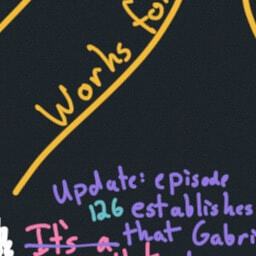 Works for
Update: episode
126 establishes
It's a that Gabri